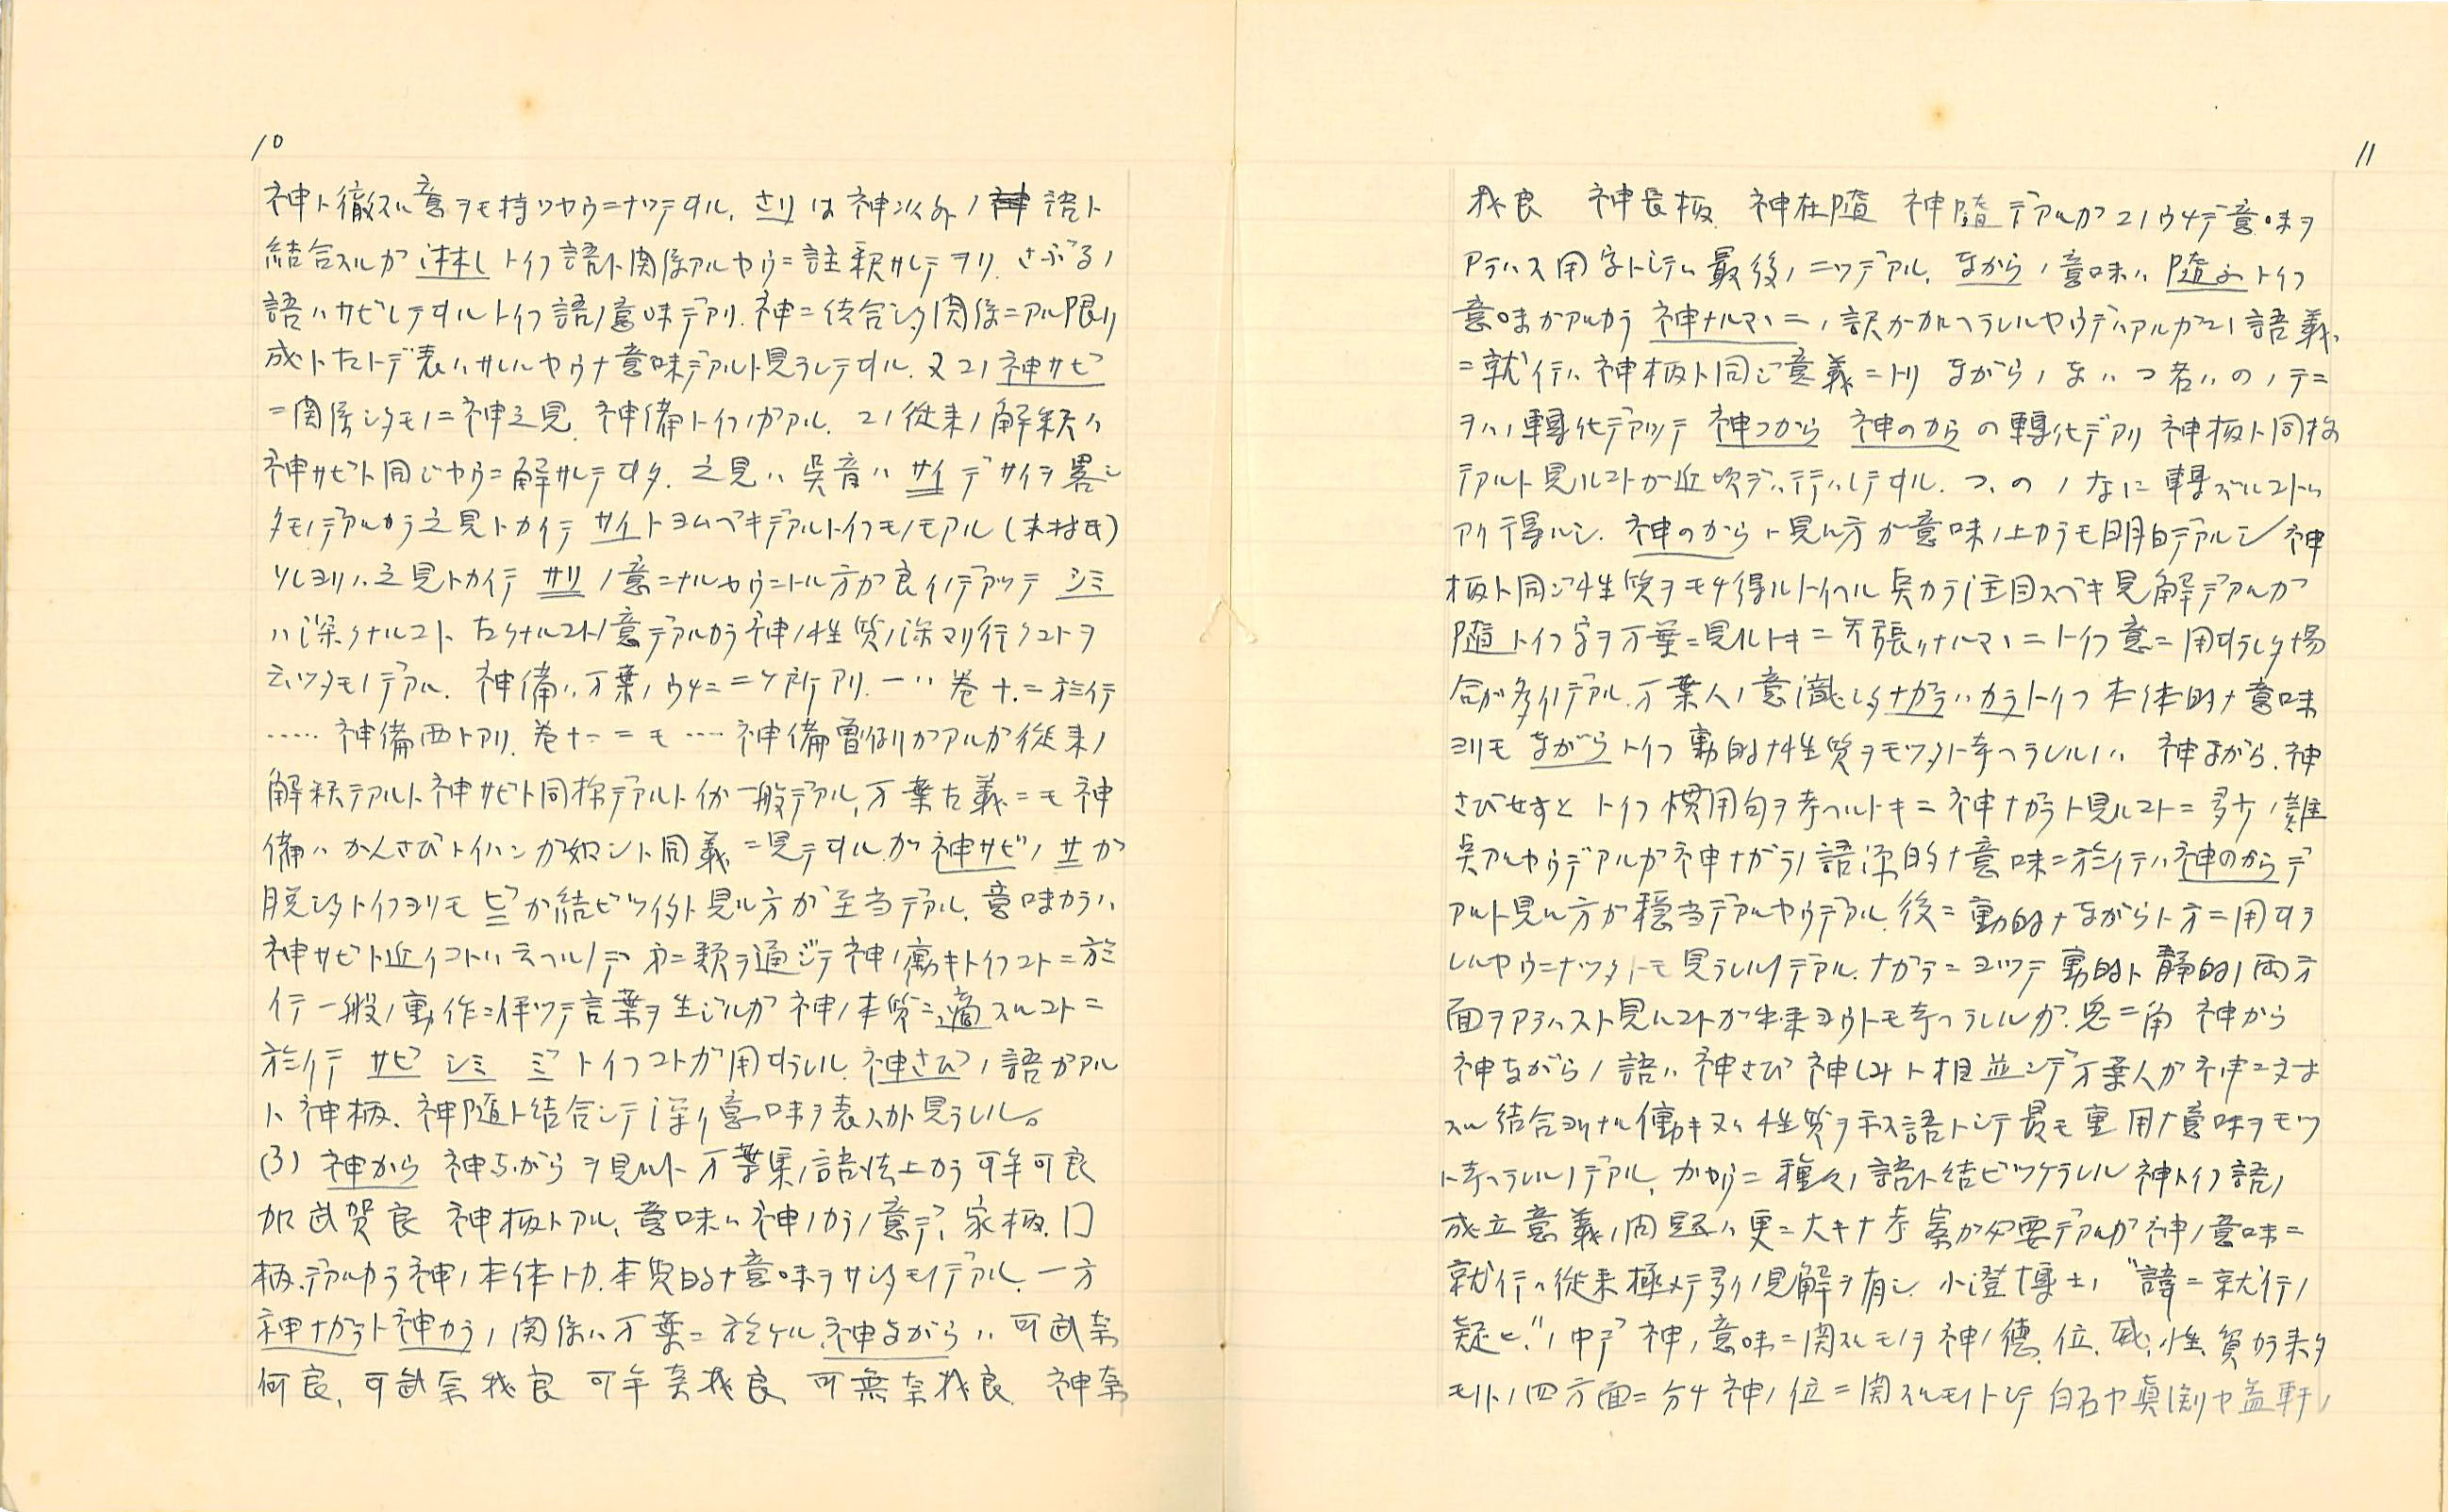 10
神ト徹スル意ヲモ持ツヤウニナツテヰル. さりは神以外ノ語ト
結合スルガ淋しトイフ語ト関係アルヤウニ註釈サレテヲリ. さぶるノ
語ハサビレテヰルトイフ語ノ意味デアリ. 神ニ結合シタ関係ニアル限リ
成トカトデ表ハサレルヤウナ意味デアルト見ラレテヰル. 又コノ神サビ
ニ関係シタモノニ神之見. 神備トイフノガアル. コノ従来ノ解釈ハ
神サビト同じヤウニ解サレテヰタ. 之見ハ呉音ハサイデサイヲ畧シ
タモノデアルカラ之見トカイテサイトヨムベキデアルトイフモノモアル (木村氏)
ソレヨリハ之見トカイテサリノ意ニナルヤウニトル方ガ良イノデアツテシミ
ハ深クナルコト 古クナルコトノ意デアルカラ神ノ性質ノ深マリ行クコトヲ
云ツタモノデアル. 神備ハ万葉ノウチニ二ケ所アリ. 一ハ巻十.ニ於イテ
…… 神備西トアリ. 巻十一ニモ …… 神備曽例リガアルガ従来ノ
解釈デアルト神サビト同様デアルト イフガ一般デアル, 万葉古義ニモ神
備ハかんさびトイハンガ如シト同義ニ見テヰルガ神サビノサガ
脱シタトイフヨリモビガ結ビツイタト見ル方ガ至当デアル. 意味カラハ
神サビト近イコトハ云ヘルノデ 第二類ヲ通ジテ神ノ働キトイフコトニ於
イテ一般ノ動作ニ伴ツテ言葉ヲ生ジルガ神ノ本質ニ適スルコトニ
於イテ サビ シミ ミ トイフコトガ用ヰラレル. 神さびノ語ガアル
ト 神柄. 神随ト結合シテ深イ意味ヲ表スカト見ラレル。
(3) 神から 神ながらヲ見ルト 万葉集ノ語法上カラ可牟可良
加武賀良 神柄トアル, 意味ハ神ノカラノ意デ, 家柄. 口
柄.デアルカラ神ノ本体トカ. 本質的ナ意味ヲサシタモノデアル. 一方
神ナガラト神カラノ関係ハ万葉ニ於ケル.神ながらハ. 可武奈
何良, 可武奈我良 可牟奈我良 可無奈我良 神奈
11
我良 神長柄 神在随 神随デアルガコノウチデ意味ヲ
アラハス用字トシテハ最後ノ二ツデアル. ながらノ意味ハ随ふトイフ
意味ガアルカラ神ナルマヽニノ訳ガ加ヘラレルヤウデハアルガコノ語義
ニ就イテハ神柄ト同じ意義ニトリ ながらノなハつ若ハのノテニ
ヲハノ轉化デアツテ神つから 神のからの轉化デアリ神柄ト同様
デアルト見ルコトガ近頃デハ行ハレテヰル. つ. の ノ なに轉ズルコトハ
アリ得ルシ. 神のからト見ル方ガ意味ノ上カラモ明白デアルシ神
柄ト同ジ性質ヲモチ得ルトイヘル点カラ注目スベキ見解デアルガ
随トイフ字ヲ万葉ニ見ルトキニ矢張リナルマヽニトイフ意ニ用ヰラレタ場
合ガ多イノデアル. 万葉人ノ意識シタナガラハカラトイフ本体的ナ意味
ヨリモながらトイフ動的ナ性質ヲモツタト考ヘラレルノハ 神ながら.神
さびせすと トイフ慣用句ヲ考ヘルトキニ神ナガラト見ルコトニ多少ノ難
点アルヤウデアルガ神ナガラノ語源的ナ意味ニ於イテハ神のからデ
アルト見ル方ガ穏当デアルヤウデアル. 後ニ動的ナながらト方ニ用ヰラ
レルヤウニナツタトモ見ラレルノデアル. ナガラニヨツテ動的ト静的ノ両方
面ヲアラハスト見ルコトガ出来ヨウトモ考ヘラレルガ. 兎ニ角 神から
神ながらノ語ハ 神さび 神しみト相並ンデ万葉人ガ神ニ対
スル結合ヨリナル働キ又ハ性質ヲ示ス語トシテ最モ重用ナ意味ヲモツ
ト考ヘラレルノデアル. カヤウニ種々ノ語ト結ビツケラレル神トイフ語ノ
成立意義ノ問題ハ更ニ大キナ考案ガ必要デアルガ神ノ意味ニ
就イテハ従来極メテ多クノ見解ヲ有シ 小澄博士ノ "諱ニ就イテノ
疑ヒ"ノ中デ 神ノ意味ニ関スルモノヲ 神ノ徳. 位. 威. 性質カラ来タ
モノトノ四方面ニ分チ神ノ位ニ関スルモノトシテ白石ヤ真淵ヤ益軒ノ